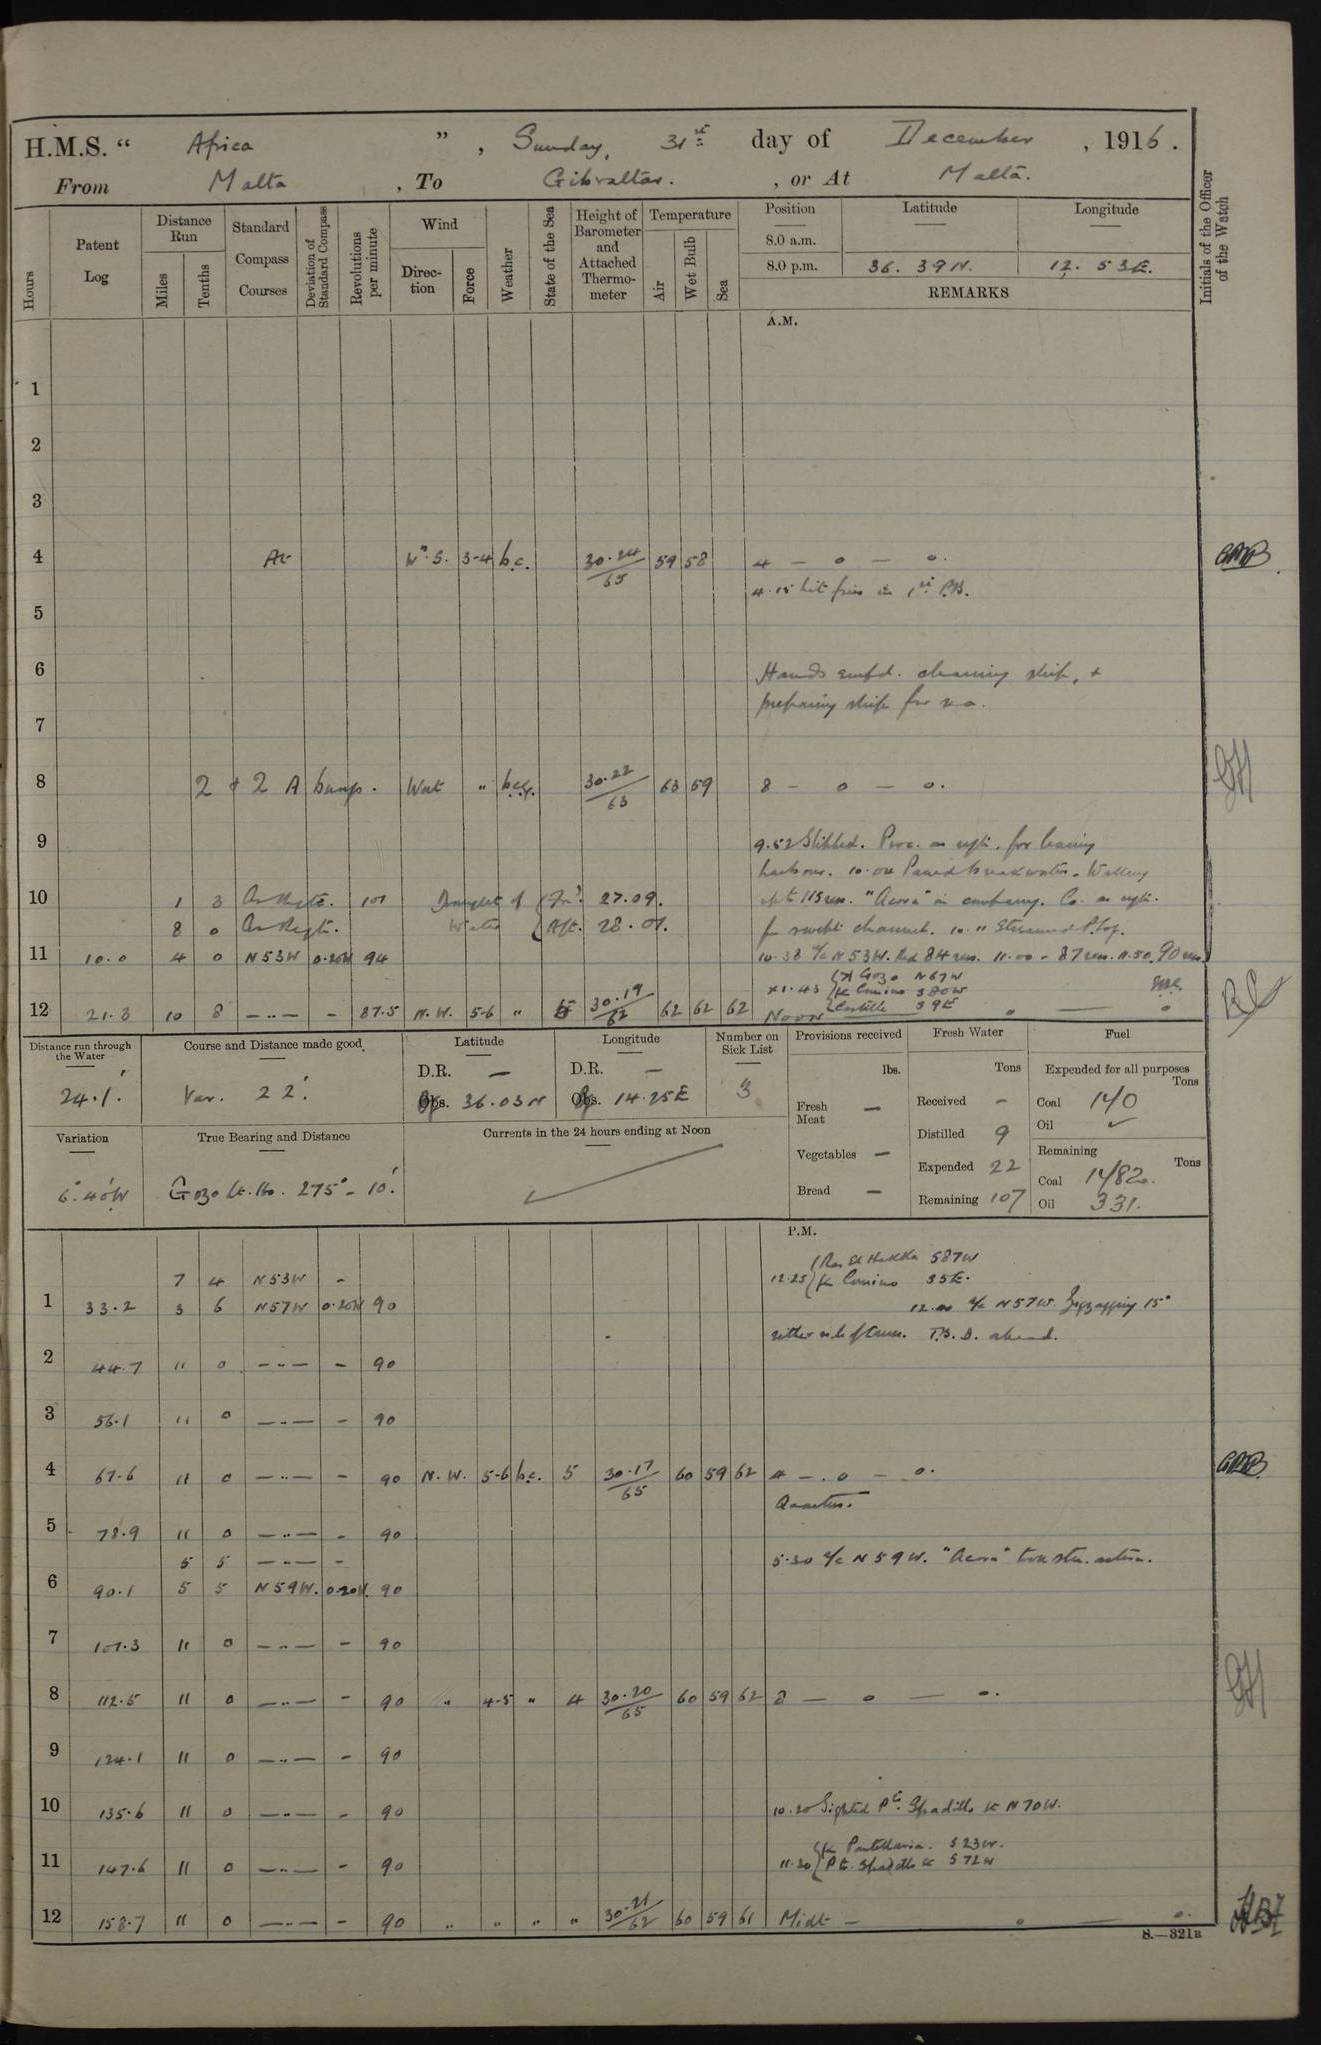 H.M.S. " Africa ", Sunday, 31st day of December, 1916.
From Malta, To Gibraltar., or At Malta.
Initials of the Officer of the Watch
Hours
Patent Log
Distance Run
Miles
Tenths
Standard Compass Courses
Deviation of Standard Compass
Revolutions per minute
Wind
Direction
Force
Weather
State of the Sea
Height of Barometer and Attached Thermometer
Temperature
Air
Wet Bulb
Sea
Position Latitude Longitude
8.0 a.m.
8.0 p.m. 36. 39N. 12. 53E.
REMARKS
A.M.
1
2
3
4 At 3-4 b.c. 30.24/65 59 58 4 — o — o.
4.15 lit fires in 1st
5
6 Hands empd. cleaning ship, +
preparing ship for sea.
7
8 2 + 2 A West " 30.22/63 63 59 8 — o — o.
9 9.52 Slipped. Proc. as reqte. for leaving
harbour. Passed breakwater.
10 1 3 As Reqte. 101 Draught of Water For'd. 27.09. "Acorn" in company. Co. as reqte.
8 0 As Reqte. Aft. 28.01. for swept channel.
11 10.0 4 0 N53W 0.20W 94 10.38 A/c N53W. Red 84 revs. 11.00 - 87 revs. 11.50. 90 revs.
Gozo N67W
Comino S80W
12 21.3 10 8 —..— - 87.5 N.W. 5-6 " 30.19/62 62 62 62 Noon
Distance run through the Water
24.1'.
Course and Distance made good
Var. 22'.
Latitude
D.R. —
Obs. 36.03N
Longitude
D.R. —
Obs. 14.25E
Number on Sick List
3
Variation
6°.40'W
True Bearing and Distance
Gozo Lt. Ho. 275° - 10'.
Currents in the 24 hours ending at Noon
Provisions received
lbs.
Fresh Meat —
Vegetables —
Bread —
Fresh Water
Tons
Received —
Distilled 9
Expended 22
Remaining 107
Fuel
Expended for all purposes
Tons
Coal 140
Oil
Remaining
Tons
Coal 1482.
Oil 331.
P.M.
7 4 N53W - 12.25 S87W
Comino S5E.
1 33.2 3 6 N57W 0.20W 90 A/c N57W. Zigzagging 15°
either side of course. T.B.D. ahead.
2 44.7 11 0 —..— - 90
3 56.1 11 0 —..— - 90
4 67.6 11 0 —..— - 90 N.W. 5-6 b.c. 5 30.17/65 60 59 62 4 — o — o.
Quarters.
5 78.9 11 0 —..— - 90
5 5 —..— - 5.30 A/c N59W. "Acorn" took stn. astern.
6 90.1 5 5 N59W. 0.20W. 90
7 101.3 11 0 —..— - 90
8 112.5 11 0 —..— - 90 " 4-5 " 4 30.20/65 60 59 62 8 — o — o.
9 124.1 11 0 —..— - 90
10 135.6 11 0 —..— - 90 10.20 Sighted Pt. Spadillo Lt N70W.
Pantellaria. S23W.
11 147.6 11 0 —..— - 90 11.30 Pt. Spadillo Lt S72W
12 158.7 11 0 —..— - 90 " " " " 30.21/62 60 59 61 Midt — o — o.
S.—321B